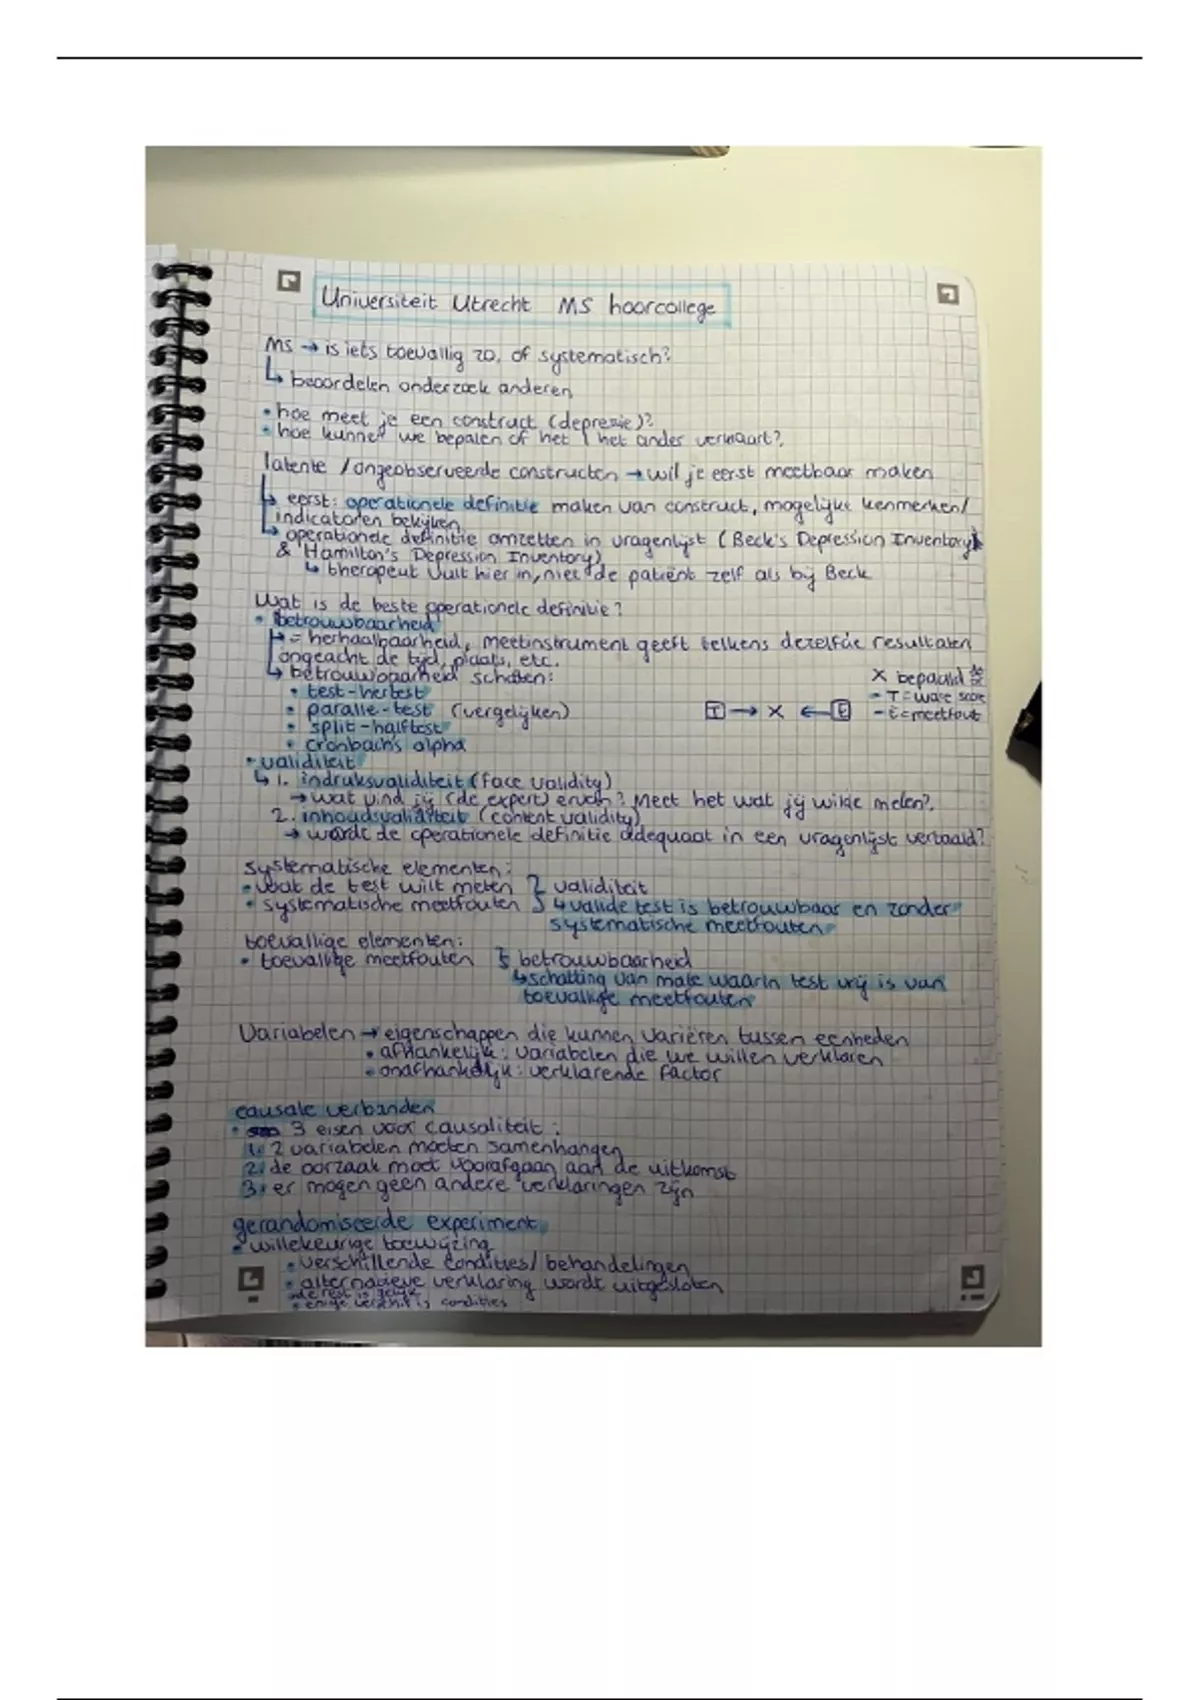 Universiteit Utrecht MS hoorcollege
MS → is iets toevallig zo, of systematisch?
↳ beoordelen onderzoek anderen
• hoe meet je een construct (depressie)?
• hoe kunnen we bepalen of het 1 het ander verklaart?
latente / ongeobserveerde constructen → wil je eerst meetbaar maken
↳ eerst: operationele definitie maken van construct, mogelijke kenmerken/
indicatoren bekijken
↳ operationele definitie omzetten in vragenlijst (Beck's Depression Inventory)
& Hamilton's Depression Inventory)
↳ therapeut vult hier in, niet de patiënt zelf als bij Beck
Wat is de beste operationele definitie?
• betrouwbaarheid
↳ = herhaalbaarheid, meetinstrument geeft telkens dezelfde resultaten
ongeacht de tijd, plaats, etc.
↳ betrouwbaarheid schatten:
• test-hertest
• paralle-test (vergelijken)
• split-halftest
• cronbach's alpha
X bepaald
- T = ware score
- E = meetfout
T → X ← E
• validiteit
↳ 1. indruksvaliditeit (face validity)
→ wat vind jij (de expert) ervan? Meet het wat jij wilde meten?
2. inhoudsvaliditeit (content validity)
→ wordt de operationele definitie adequaat in een vragenlijst vertaald?
systematische elementen:
• wat de test wilt meten } validiteit
• systematische meetfouten ↳ valide test is betrouwbaar en zonder
systematische meetfouten
toevallige elementen:
• toevallige meetfouten } betrouwbaarheid
↳ schatting van mate waarin test vrij is van
toevallige meetfouten
Variabelen → eigenschappen die kunnen variëren tussen eenheden
• afhankelijk: variabelen die we willen verklaren
• onafhankelijk: verklarende factor
causale verbanden
• 3 eisen voor causaliteit:
1. 2 variabelen moeten samenhangen
2. de oorzaak moet voorafgaan aan de uitkomst
3. er mogen geen andere verklaringen zijn
gerandomiseerde experiment
• willekeurige toewijzing
• verschillende condities/behandelingen
• alternatieve verklaring wordt uitgesloten
de rest is gelijk
• enige verschil is condities